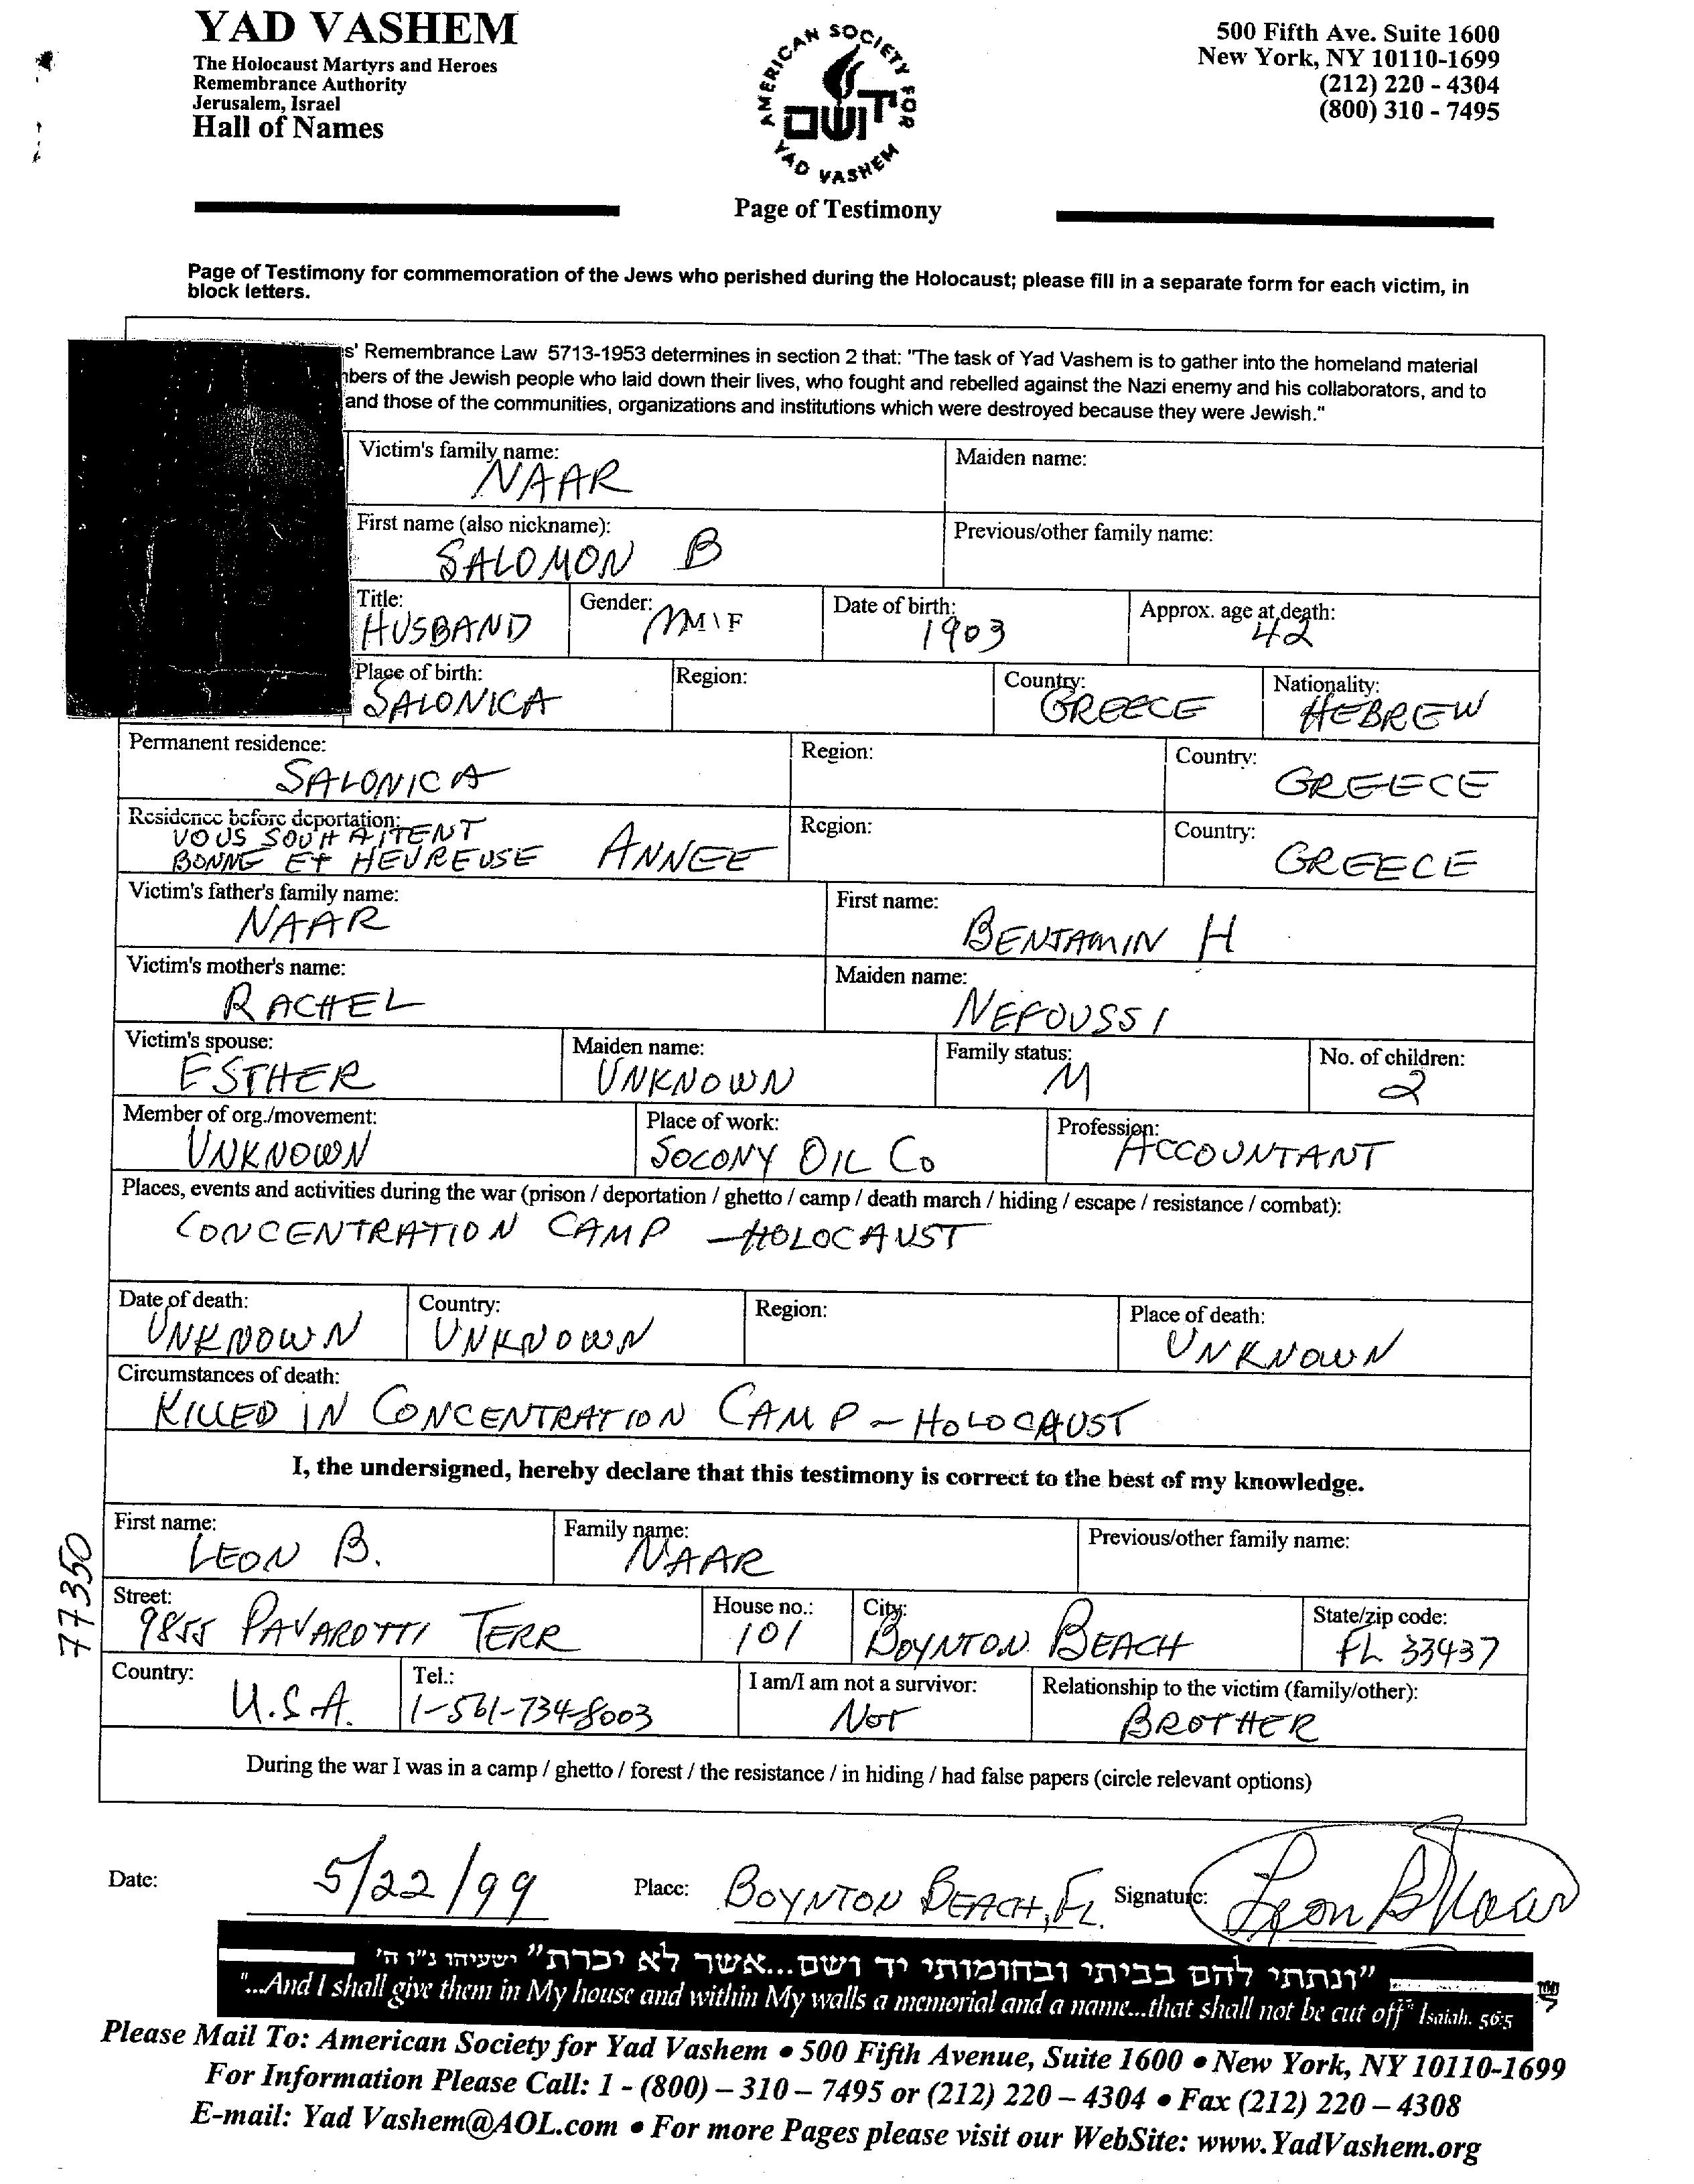 YAD VASHEM
The Holocaust Martyrs and Heroes
Remembrance Authority
Jerusalem, Israel
Hall of Names
AMERICAN SOCIETY FOR
יד ושם
YAD VASHEM
500 Fifth Ave. Suite 1600
New York, NY 10110-1699
(212) 220 - 4304
(800) 310 - 7495
Page of Testimony
Page of Testimony for commemoration of the Jews who perished during the Holocaust; please fill in a separate form for each victim, in
block letters.
s' Remembrance Law 5713-1953 determines in section 2 that: "The task of Yad Vashem is to gather into the homeland material
bers of the Jewish people who laid down their lives, who fought and rebelled against the Nazi enemy and his collaborators, and to
and those of the communities, organizations and institutions which were destroyed because they were Jewish."
Victim's family name: NAAR Maiden name:
First name (also nickname): SALOMON B Previous/other family name:
Title: HUSBAND Gender: M M\F Date of birth: 1903 Approx. age at death: 42
Place of birth: SALONICA Region: Country: GREECE Nationality: HEBREW
Permanent residence: SALONICA Region: Country: GREECE
Residence before deportation: VOUS SOUHAITENT
BONNE ET HEUREUSE ANNEE Region: Country: GREECE
Victim's father's family name: NAAR First name: BENJAMIN H
Victim's mother's name: RACHEL Maiden name: NEFOUSSI
Victim's spouse: ESTHER Maiden name: UNKNOWN Family status: M No. of children: 2
Member of org./movement: UNKNOWN Place of work: SOCONY OIL Co Profession: ACCOUNTANT
Places, events and activities during the war (prison / deportation / ghetto / camp / death march / hiding / escape / resistance / combat):
CONCENTRATION CAMP - HOLOCAUST
Date of death: UNKNOWN Country: UNKNOWN Region: Place of death: UNKNOWN
Circumstances of death:
KILLED IN CONCENTRATION CAMP - HOLOCAUST
I, the undersigned, hereby declare that this testimony is correct to the best of my knowledge.
77350
First name: LEON B. Family name: NAAR Previous/other family name:
Street: 9855 PAVAROTTI TERR House no.: 101 City: BOYNTON BEACH State/zip code: FL 33437
Country: U.S.A. Tel.: 1-561-734-8003 I am/I am not a survivor: NOT Relationship to the victim (family/other): BROTHER
During the war I was in a camp / ghetto / forest / the resistance / in hiding / had false papers (circle relevant options)
Date: 5/22/99 Place: BOYNTON BEACH, FL. Signature: Leon B Naar
"ונתתי להם בביתי ובחומותי יד ושם...אשר לא יכרת" ישעיהו נ"ו ה'
"...And I shall give them in My house and within My walls a memorial and a name...that shall not be cut off" Isaiah. 56:5
Please Mail To: American Society for Yad Vashem ● 500 Fifth Avenue, Suite 1600 ● New York, NY 10110-1699
For Information Please Call: 1 - (800) – 310 – 7495 or (212) 220 – 4304 ● Fax (212) 220 – 4308
E-mail: Yad Vashem@AOL.com ● For more Pages please visit our WebSite: www.YadVashem.org